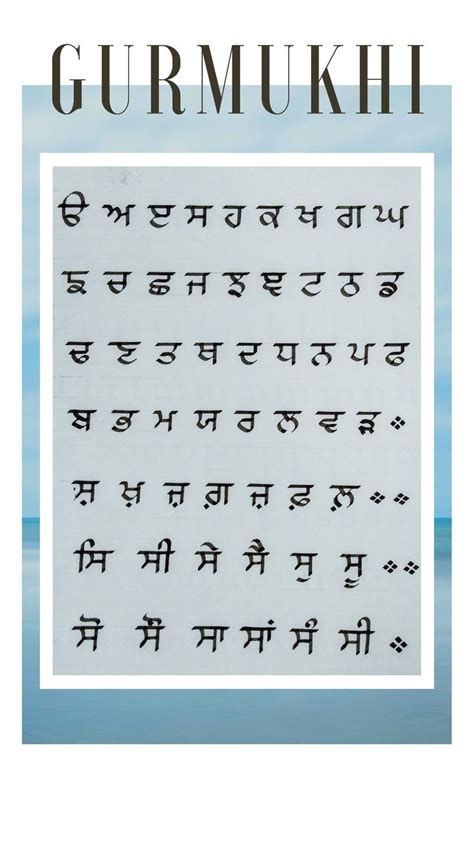 GURMUKHI
ੳ ਅ ੲ ਸ ਹ ਕ ਖ ਗ ਘ
ਙ ਚ ਛ ਜ ਝ ਞ ਟ ਠ ਡ
ਢ ਣ ਤ ਥ ਦ ਧ ਨ ਪ ਫ
ਬ ਭ ਮ ਯ ਰ ਲ ਵ ੜ ❖
ਸ਼ ਖ਼ ਜ਼ ਗ਼ ਜ਼ ਫ਼ ਲ਼ ❖ ❖
ਸਿ ਸੀ ਸੇ ਸੈ ਸੁ ਸੂ ❖ ❖
ਸੋ ਸੌ ਸਾ ਸਾਂ ਸੰ ਸੀ ❖